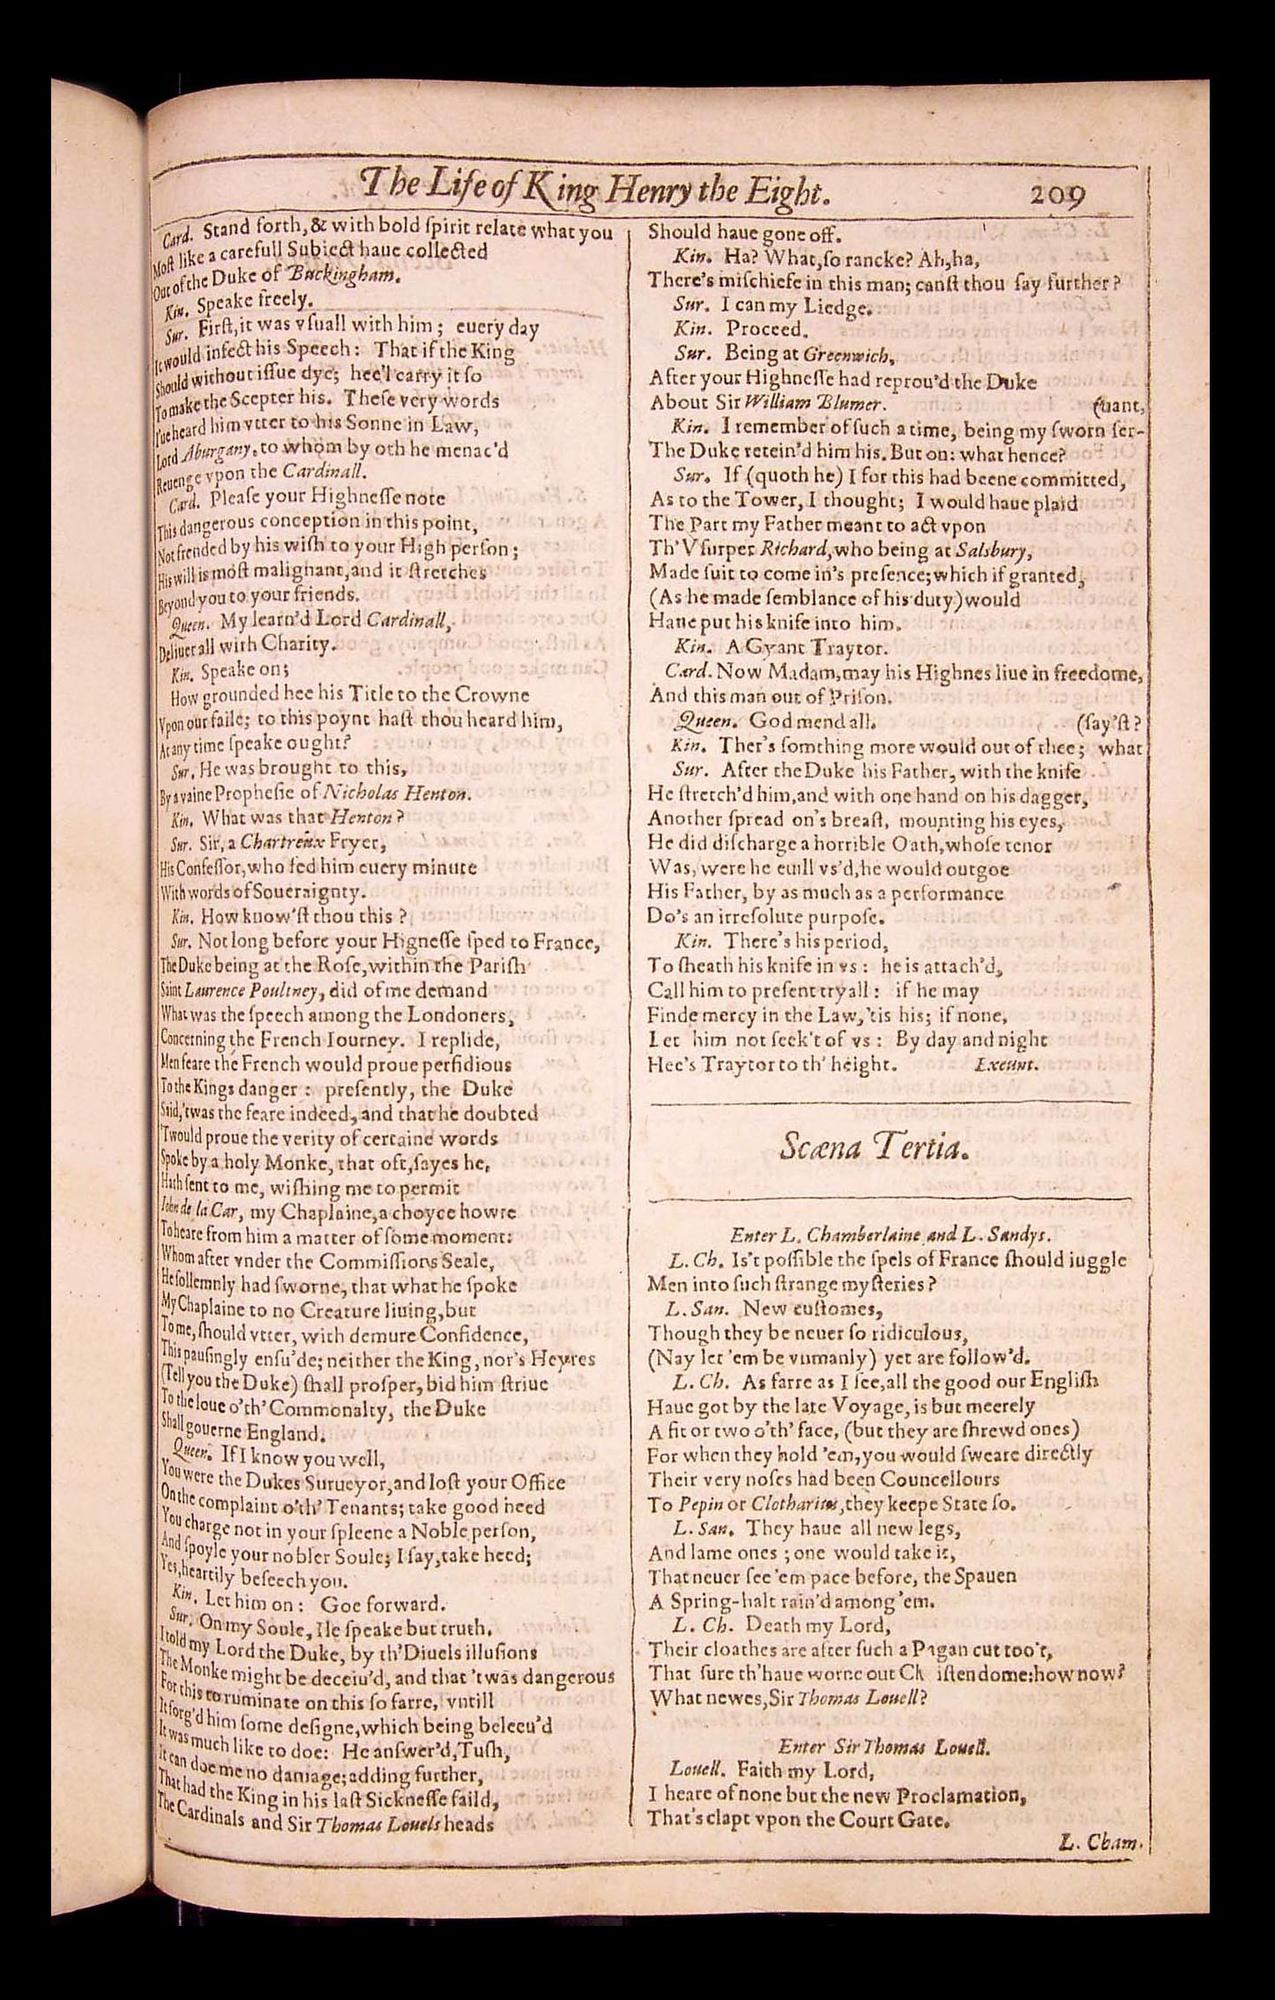 The Life of King Henry the Eight. 209
Card. Stand forth,& with bold ſpirit relate what you
Moſt like a carefull Subiect haue collected
Out of the Duke of Buckingham.
Kin. Speake freely.
Sur. Firſt,it was vſuall with him; euery day
It would infect his Speech: That if the King
Should without iſſue dye; hee'l carry it ſo
To make the Scepter his. Theſe very words
I'ue heard him vtter to his Sonne in Law,
Lord Aburgany, to whom by oth he menac'd
Reuenge vpon the Cardinall.
Card. Pleaſe your Highneſſe note
This dangerous conception in this point,
Not frended by his wiſh to your High perſon;
His will is moſt malignant,and it ſtretches
Beyond you to your friends.
Queen. My learn'd Lord Cardinall,
Deliuer all with Charity.
Kin. Speake on;
How grounded hee his Title to the Crowne
Vpon our faile; to this poynt haſt thou heard him,
At any time ſpeake ought?
Sur. He was brought to this,
By a vaine Propheſie of Nicholas Henton.
Kin. What was that Henton?
Sur. Sir, a Chartreux Fryer,
His Confeſſor,who fed him euery minute
With words of Soueraignty.
Kin. How know'ſt thou this?
Sur. Not long before your Higneſſe ſped to France,
The Duke being at the Roſe, within the Pariſh
Saint Laurence Poultney, did of me demand
What was the ſpeech among the Londoners,
Concerning the French Iourney. I replide,
Men feare the French would proue perfidious
To the Kings danger: preſently, the Duke
Said,'twas the feare indeed, and that he doubted
'Twould proue the verity of certaine words
Spoke by a holy Monke, that oft,ſayes he,
Hath ſent to me, wiſhing me to permit
Iohn de la Car, my Chaplaine,a choyce howre
To heare from him a matter of ſome moment:
Whom after vnder the Commiſſions Seale,
He ſollemnly had ſworne, that what he ſpoke
My Chaplaine to no Creature liuing,but
To me, ſhould vtter, with demure Confidence,
This pauſingly enſu'de; neither the King, nor's Heyres
(Tell you the Duke) ſhall proſper, bid him ſtriue
To the loue o'th' Commonalty, the Duke
Shall gouerne England.
Queen. If I know you well,
You were the Dukes Surueyor,and loſt your Office
On the complaint o'th' Tenants; take good heed
You charge not in your ſpleene a Noble perſon,
And ſpoyle your nobler Soule; I ſay,take heed;
Yes,heartily beſeech you.
Kin. Let him on: Goe forward.
Sur. On my Soule, Ile ſpeake but truth.
I told my Lord the Duke, by th'Diuels illuſions
The Monke might be deceiu'd, and that 'twas dangerous
For this to ruminate on this ſo farre, vntill
It forg'd him ſome deſigne,which being beleeu'd
It was much like to doe: He anſwer'd,Tuſh,
It can doe me no damage;adding further,
That had the King in his laſt Sickneſſe faild,
The Cardinals and Sir Thomas Louels heads
Should haue gone off.
Kin. Ha? What,ſo rancke? Ah,ha,
There's miſchiefe in this man; canſt thou ſay further?
Sur. I can my Liedge.
Kin. Proceed.
Sur. Being at Greenwich,
After your Highneſſe had reprou'd the Duke
About Sir William Blumer. (uant,
Kin. I remember of ſuch a time, being my ſworn ſer-
The Duke retein'd him his. But on: what hence?
Sur. If (quoth he) I for this had beene committed,
As to the Tower, I thought; I would haue plaid
The Part my Father meant to act vpon
Th'Vſurper Richard,who being at Salsbury,
Made ſuit to come in's preſence;which if granted,
(As he made ſemblance of his duty) would
Haue put his knife into him.
Kin. A Gyant Traytor.
Card. Now Madam,may his Highnes liue in freedome,
And this man out of Priſon.
Queen. God mend all. (ſay'ſt?
Kin. Ther's ſomthing more would out of thee; what
Sur. After the Duke his Father, with the knife
He ſtretch'd him,and with one hand on his dagger,
Another ſpread on's breaſt, mounting his eyes,
He did diſcharge a horrible Oath,whoſe tenor
Was, were he euill vs'd,he would outgoe
His Father, by as much as a performance
Do's an irreſolute purpoſe.
Kin. There's his period,
To ſheath his knife in vs: he is attach'd,
Call him to preſent tryall: if he may
Finde mercy in the Law,'tis his; if none,
Let him not ſeek't of vs: By day and night
Hee's Traytor to th' height. Exeunt.
Scæna Tertia.
Enter L. Chamberlaine and L. Sandys.
L. Ch. Is't poſſible the ſpels of France ſhould iuggle
Men into ſuch ſtrange myſteries?
L. San. New cuſtomes,
Though they be neuer ſo ridiculous,
(Nay let 'em be vnmanly) yet are follow'd.
L. Ch. As farre as I ſee,all the good our Engliſh
Haue got by the late Voyage, is but meerely
A fit or two o'th' face, (but they are ſhrewd ones)
For when they hold 'em,you would ſweare directly
Their very noſes had been Councellours
To Pepin or Clotharius,they keepe State ſo.
L. San. They haue all new legs,
And lame ones; one would take it,
That neuer ſee 'em pace before, the Spauen
A Spring-halt rain'd among 'em.
L. Ch. Death my Lord,
Their cloathes are after ſuch a Pagan cut too't,
That ſure th'haue worne out Ch iſtendome:how now?
What newes,Sir Thomas Louell?
Enter Sir Thomas Louell.
Louell. Faith my Lord,
I heare of none but the new Proclamation,
That's clapt vpon the Court Gate.
L. Cham.